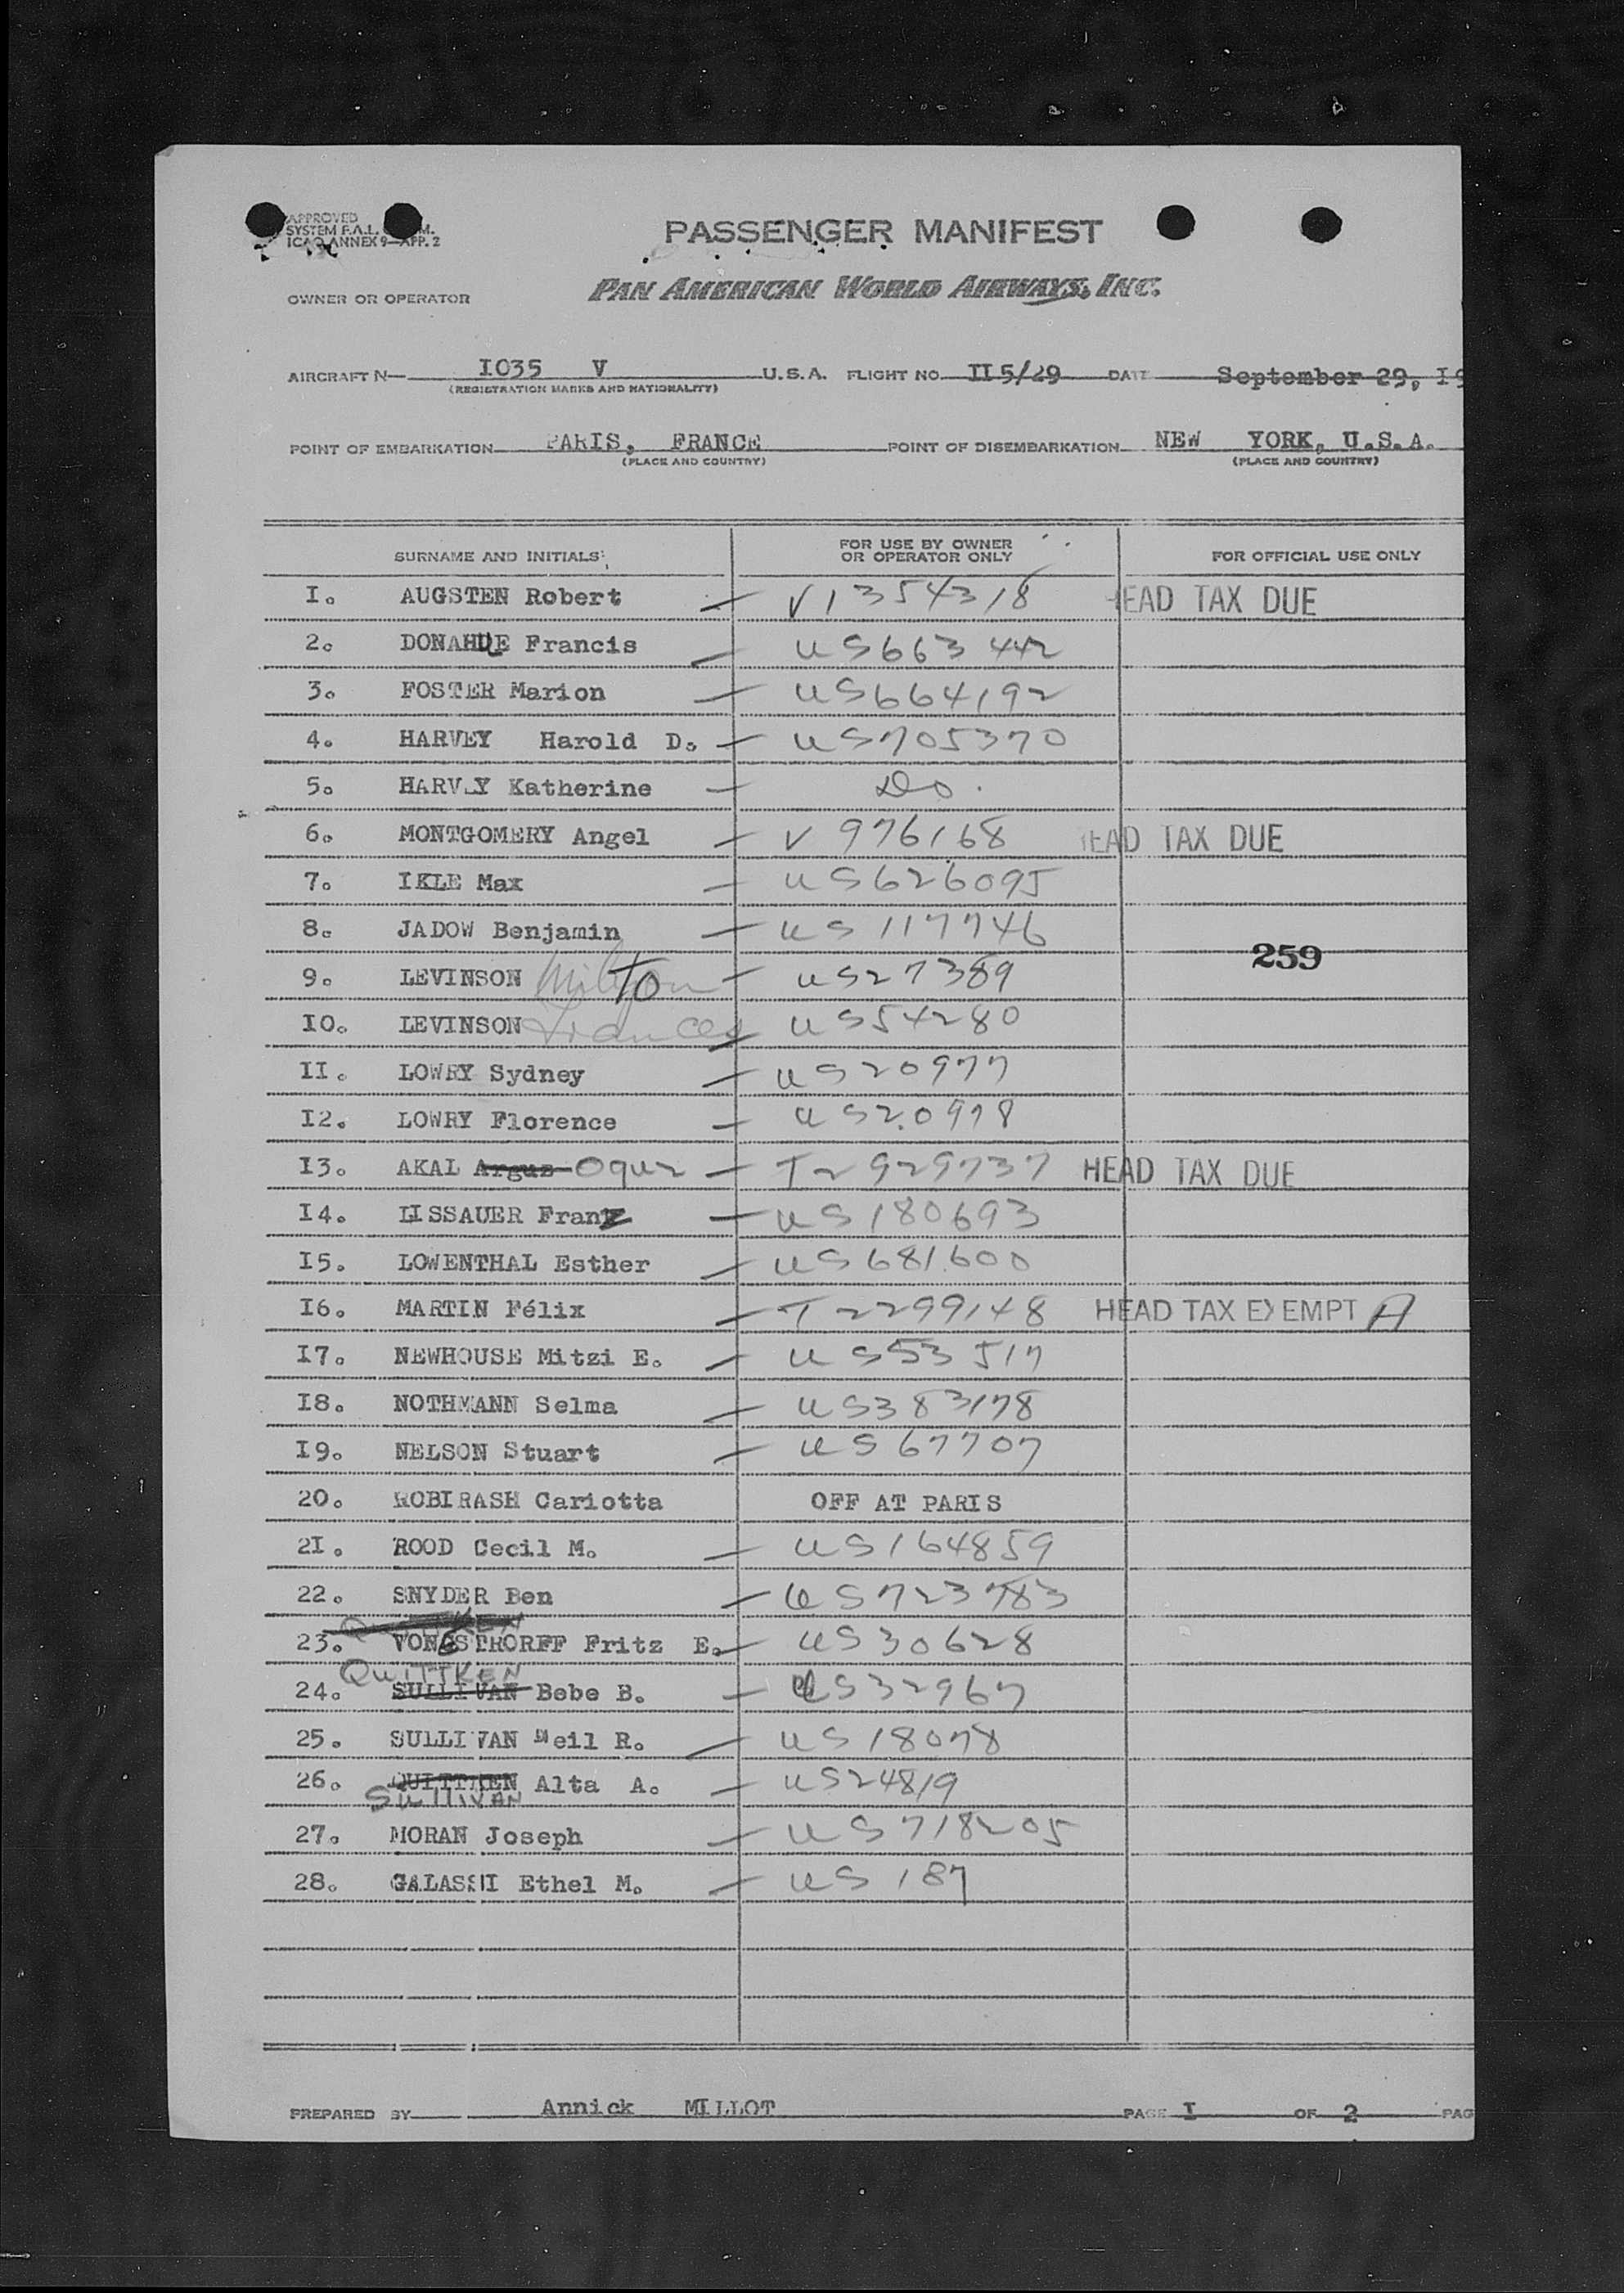 APPROVED
SYSTEM F.A.L. M.
ICAO ANNEX 9—APP. 2
PASSENGER MANIFEST
OWNER OR OPERATOR PAN AMERICAN WORLD AIRWAYS, INC.
AIRCRAFT N— I035 V U.S.A. FLIGHT NO. II5/29 DATE September 29, I9
(REGISTRATION MARKS AND NATIONALITY)
POINT OF EMBARKATION PARIS, FRANCE POINT OF DISEMBARKATION NEW YORK, U.S.A.
(PLACE AND COUNTRY) (PLACE AND COUNTRY)
SURNAME AND INITIALS FOR USE BY OWNER OR OPERATOR ONLY FOR OFFICIAL USE ONLY
I. AUGSTEN Robert — V1354318 HEAD TAX DUE
2. DONAHUE Francis — US663442
3. FOSTER Marion — US664192
4. HARVEY Harold D. — US705370
5. HARVEY Katherine — Do.
6. MONTGOMERY Angel — V 976168 HEAD TAX DUE
7. IKLE Max — US626095
8. JADOW Benjamin — US 117746
259
9. LEVINSON Milton — US27389
I0. LEVINSON Frances — US54280
II. LOWRY Sydney — US20977
I2. LOWRY Florence — US20978
I3. AKAL Argus Oquz — T2929737 HEAD TAX DUE
I4. LISSAUER Franz — US180693
I5. LOWENTHAL Esther — US681600
I6. MARTIN Félix — T2299148 HEAD TAX EXEMPT A
I7. NEWHOUSE Mitzi E. — US53517
I8. NOTHMANN Selma — US383178
I9. NELSON Stuart — US67707
20. ROBIRASH Cariotta OFF AT PARIS
2I. ROOD Cecil M. — US164859
22. SNYDER Ben — US723783
23. VONGSTHORFF Fritz E. — US30628
QUITTKEN
24. SULLIVAN Bebe B. — US32967
25. SULLIVAN Neil R. — US18078
26. QUITTKEN Alta A. — US24819
SULLIVAN
27. MORAN Joseph — US718205
28. GALASSI Ethel M. — US 187
PREPARED BY Annick MILLOT PAGE I OF 2 PAG